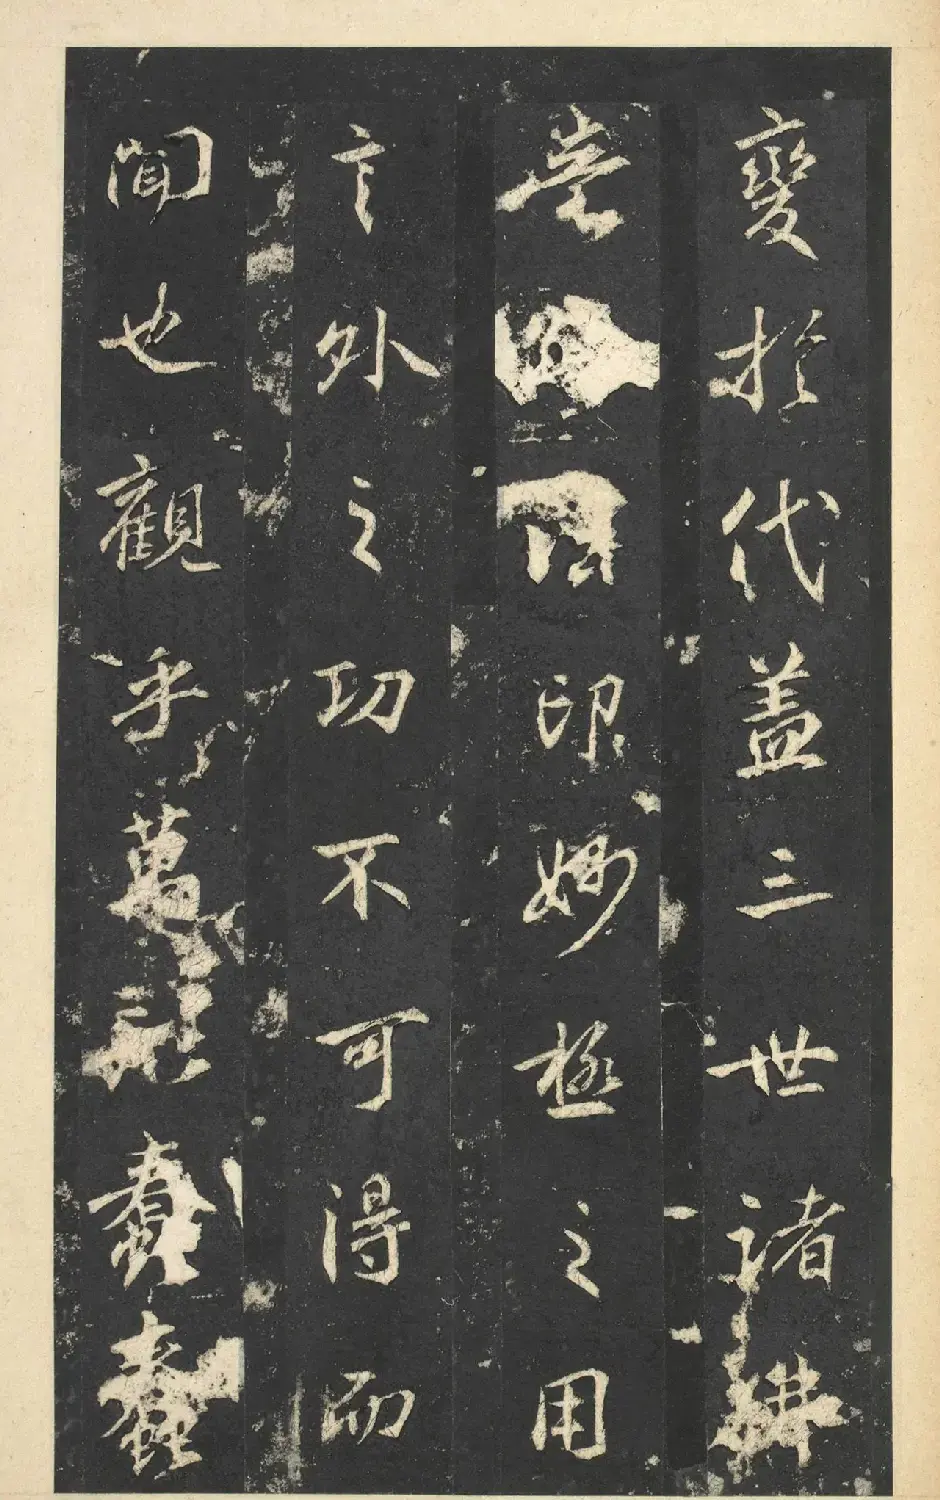 變於代蓋三世諸佛
印妙極之用
言外之功不可得而
聞也觀乎萬蠢蠢